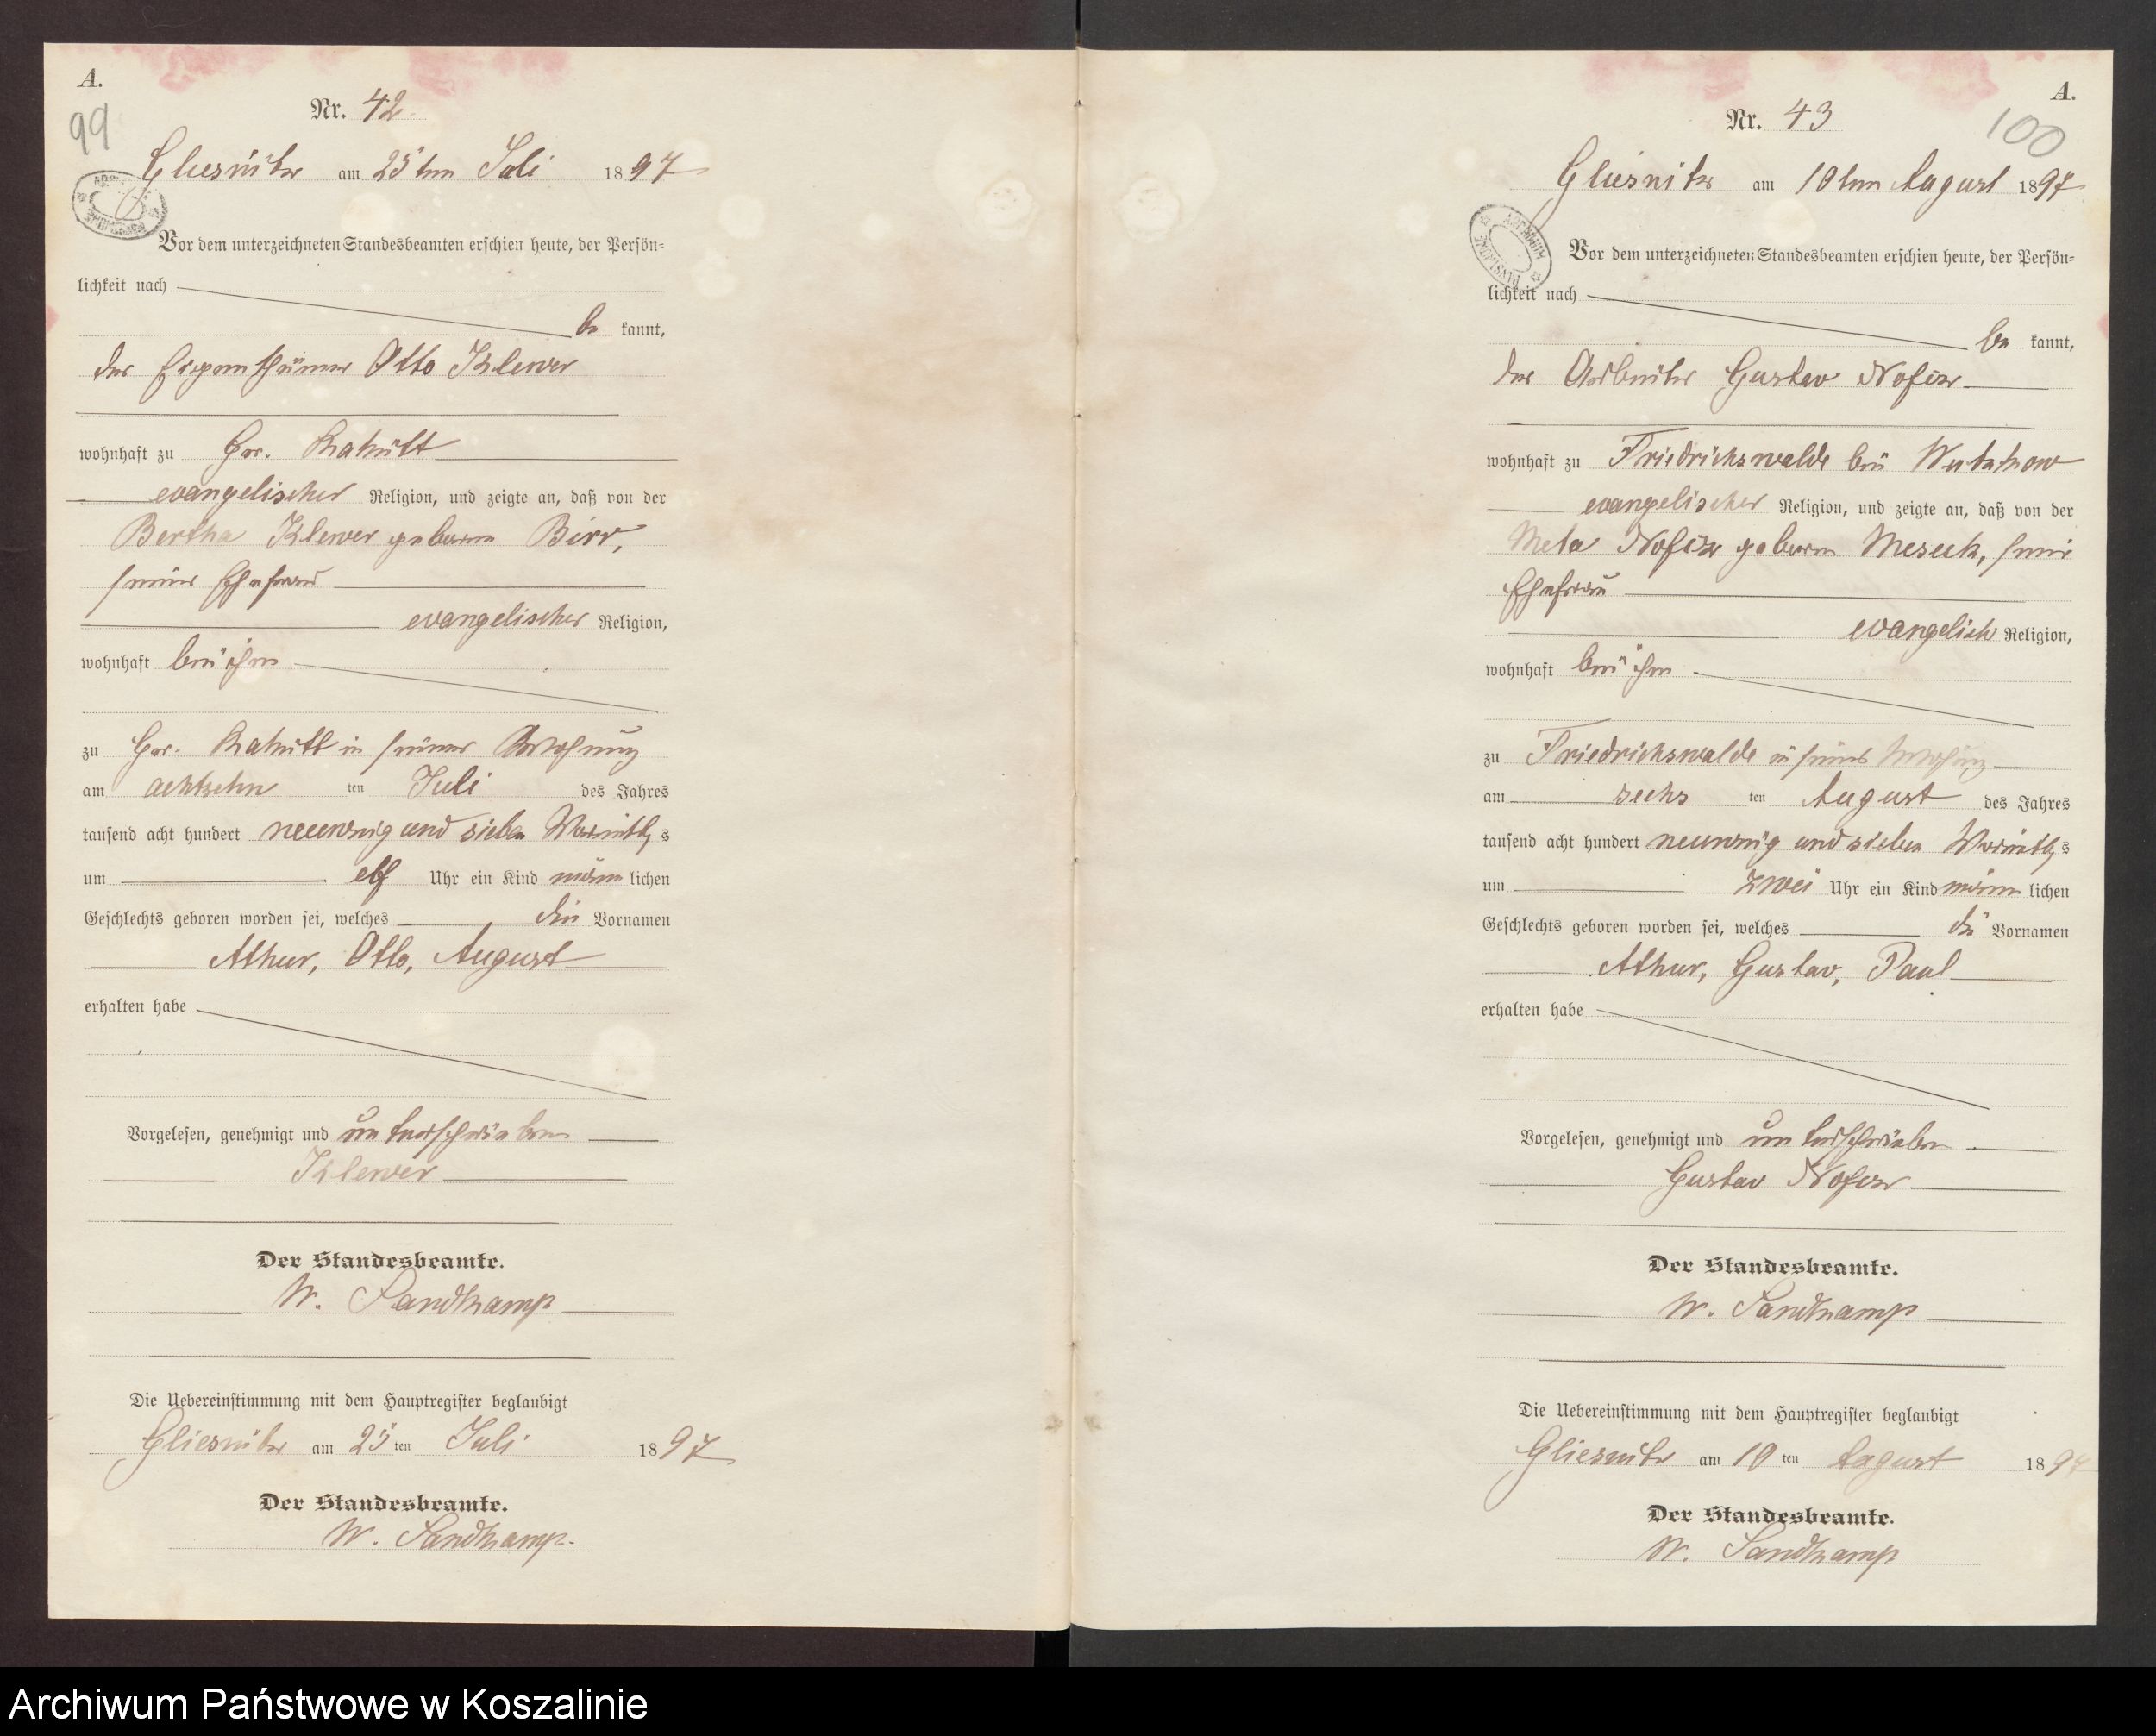 A.
99
Nr. 42.
Gliesnitz am 25ten Juli 1897
Vor dem unterzeichneten Standesbeamten erschien heute, der Persön=
lichkeit nach
be kannt,
der Eigenthümer Otto Klewer
wohnhaft zu Gr.
evangelischer Religion, und zeigte an, daß von der
Bertha Klewer geborne Birr,
seiner Ehefrau
evangelischer Religion,
wohnhaft bei ihm
zu Gr. in seiner Wohnung
am achtzehn ten Juli des Jahres
tausend acht hundert neunzig und sieben Vormittags
um elf Uhr ein Kind männ lichen
Geschlechts geboren worden sei, welches die Vornamen
Athur, Otto, August
erhalten habe
Vorgelesen, genehmigt und unterschrieben
Klewer
Der Standesbeamte.
W. Sandkamp
Die Uebereinstimmung mit dem Hauptregister beglaubigt
Gliesnitz am 25 ten Juli 1897
Der Standesbeamte.
W. Sandkamp.
A.
100
Nr. 43
Gliesnitz am 10ten August 1897
ARCHIWUM PAŃSTWOWE
Vor dem unterzeichneten Standesbeamten erschien heute, der Persön=
lichkeit nach
be kannt,
der Arbeiter Gustav
wohnhaft zu Friedrichswalde bei Wutzkow
evangelischer Religion, und zeigte an, daß von der
Meta geborne Meseck, seine
Ehefrau
evangelisch Religion,
wohnhaft bei ihm
zu Friedrichswalde in seiner Wohnung
am sechs ten August des Jahres
tausend acht hundert neunzig und sieben Vormittags
um zwei Uhr ein Kind männ lichen
Geschlechts geboren worden sei, welches die Vornamen
Athur, Gustav, Paul
erhalten habe
Vorgelesen, genehmigt und unterschrieben
Gustav
Der Standesbeamte.
W. Sandkamp
Die Uebereinstimmung mit dem Hauptregister beglaubigt
Gliesnitz am 10 ten August 1897
Der Standesbeamte.
W. Sandkamp
Archiwum Państwowe w Koszalinie